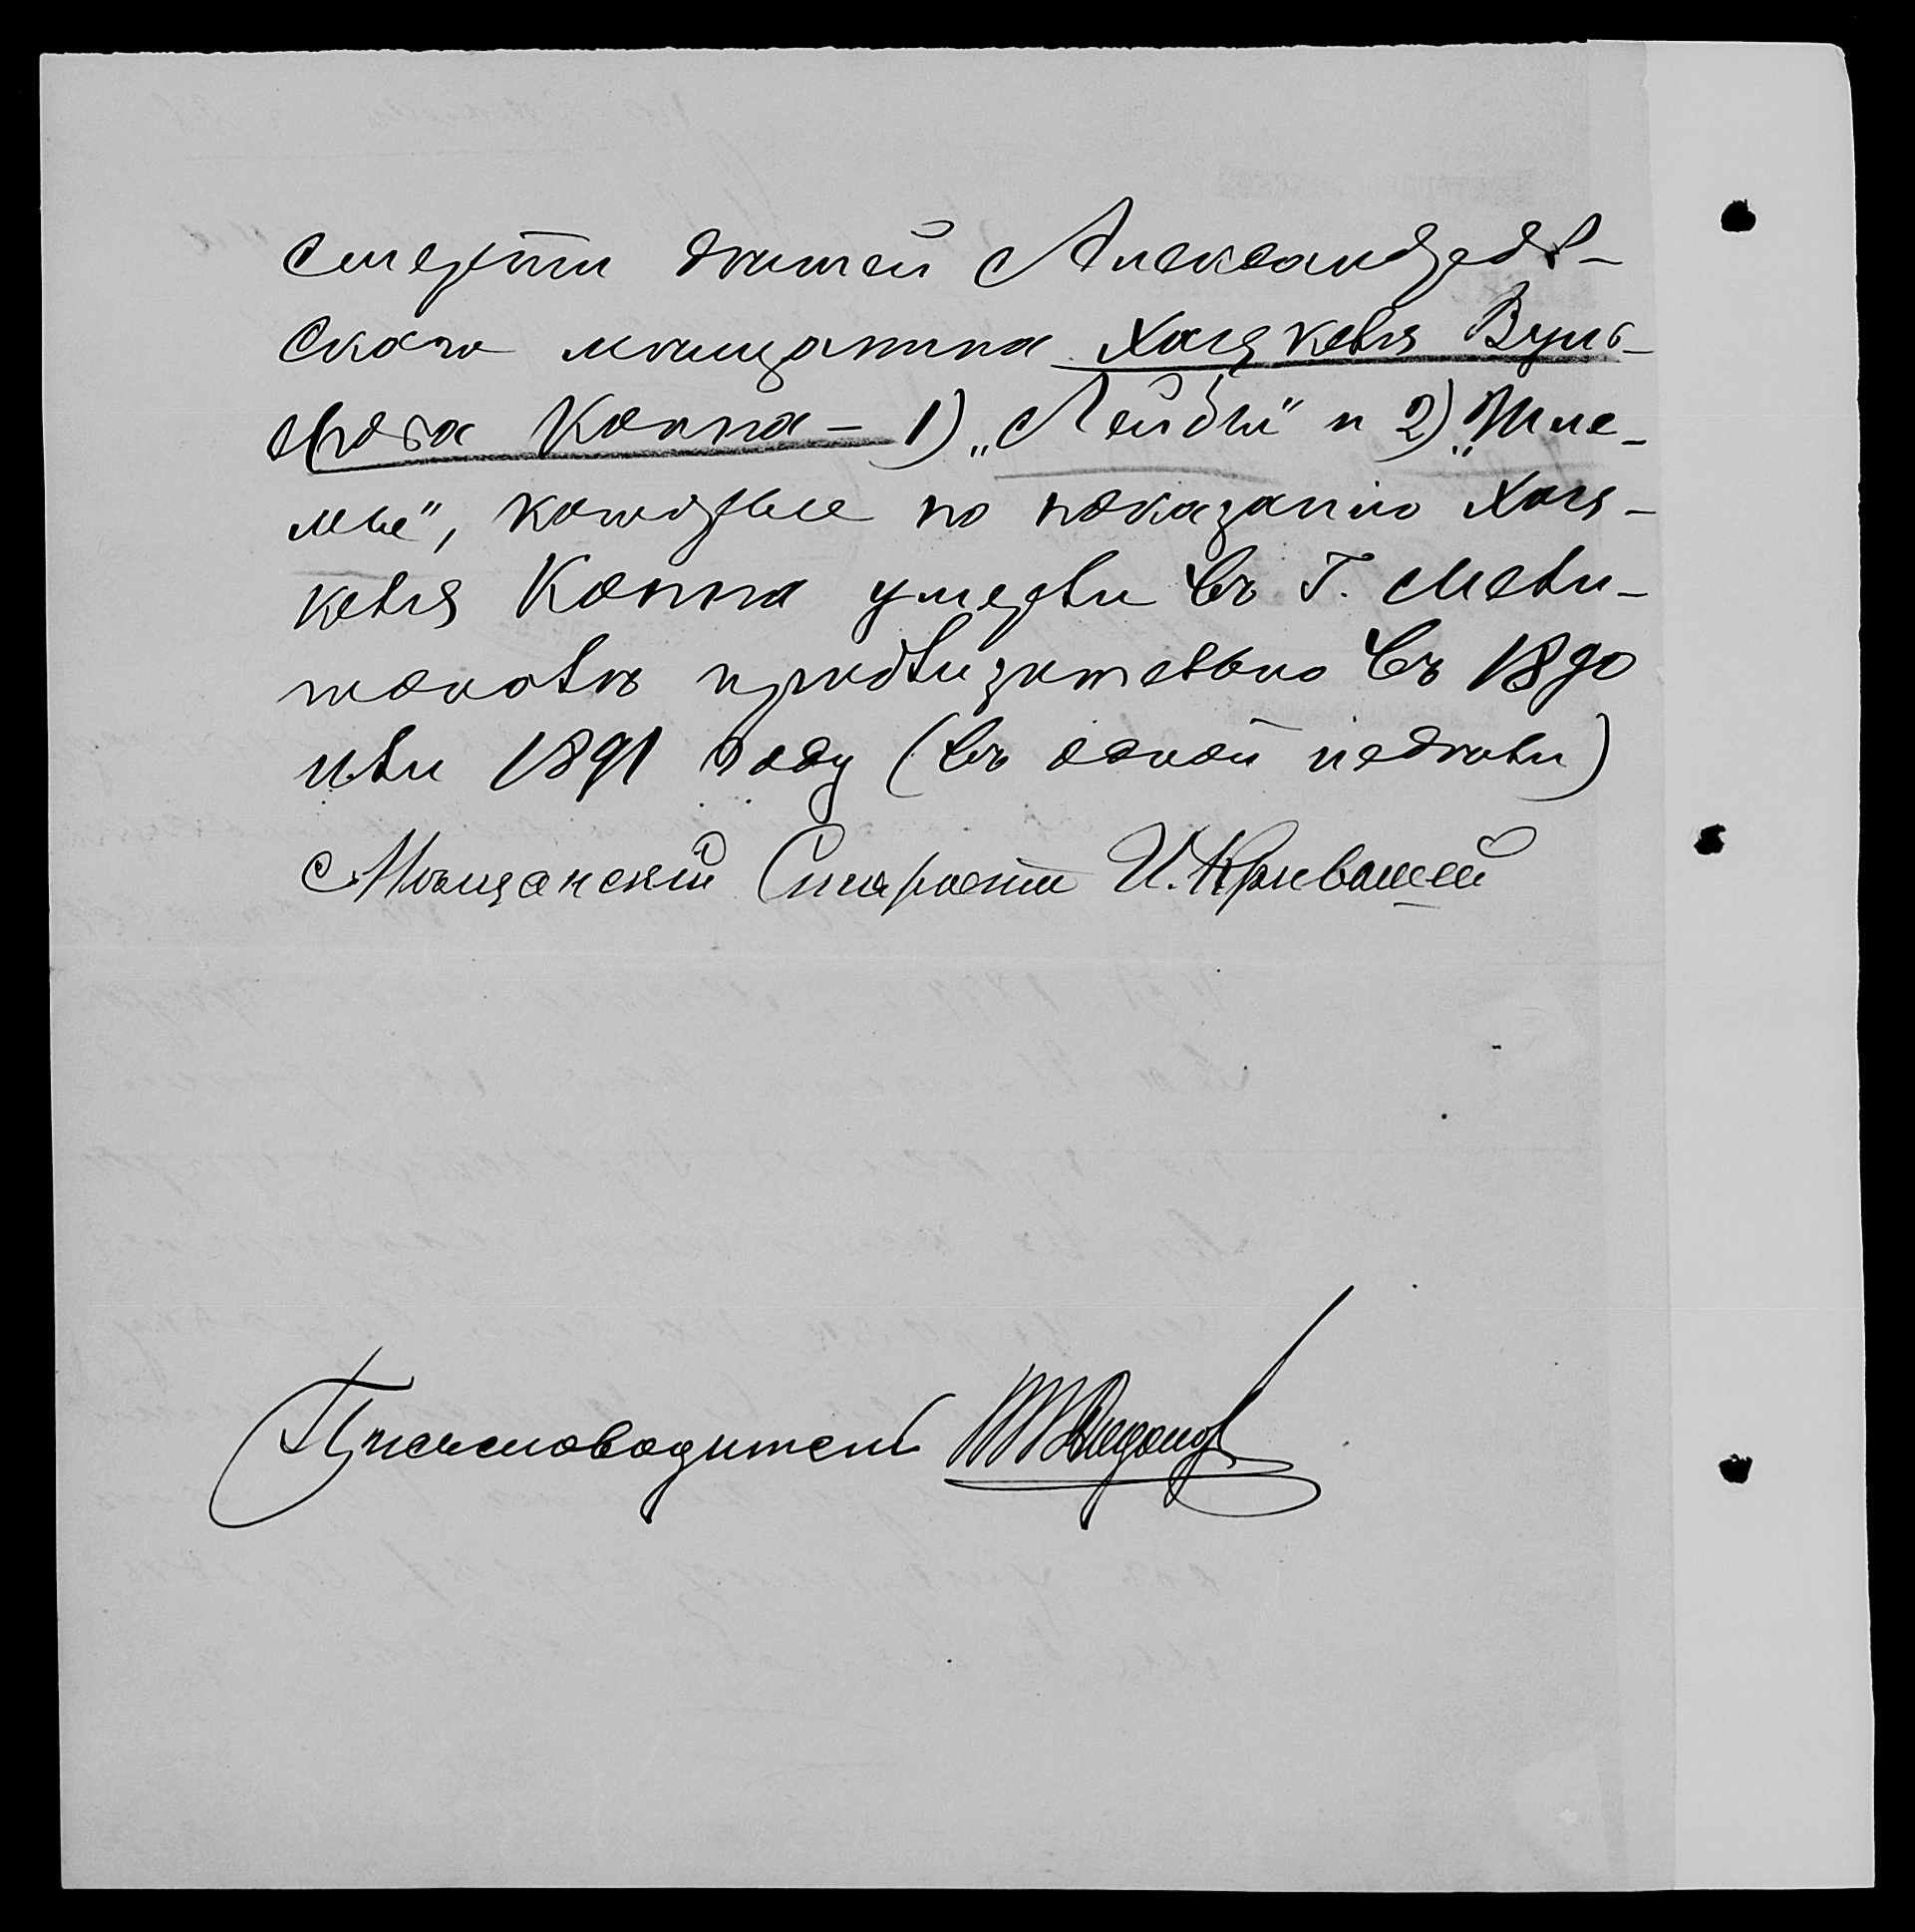 смерти дѣтей Александров-
скаго мѣщанина Хацкеля Вуль-
фова Коппа – 1) „Лейбы" и 2) „Шле-
мы", которые по показанію Хац-
келя Коппа умерли въ г. Мели-
тополѣ приблизительно въ 1890
или 1891 году (въ одной недѣли)
Мѣщанскій Староста И. Кривошей
Письмоводитель